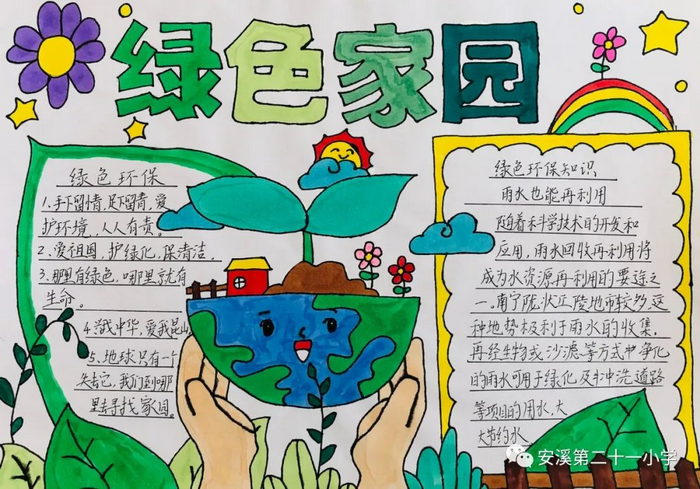 绿色家园
绿色环保
1、手下留情,足下留青,爱
护环境,人人有责。
2、爱祖国,护绿化,保清洁
3、哪里有绿色,哪里就有
生命。
4、爱我中华,爱我昆山
5、地球只有一个
失去它,我们到哪
里去寻找家园。
绿色环保知识
雨水也能再利用
随着科学技术的开发和
应用,雨水回收再利用将
成为水资源再利用的要途之
一。南宁陇状丘陵地市较多,这
种地势极利于雨水的收集,
再经生物或沙滤等方式中净化
的雨水可用于绿化及冲洗道路
等项目的用水,大
大节约水
安溪第二十一小学